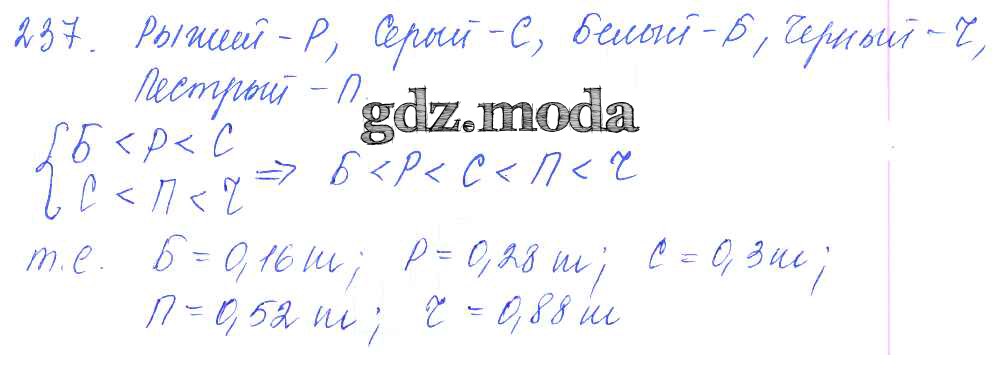 237. Рыжий - Р, Серый - С, Белый - Б, Черный - Ч,
Пестрый - П.
gdz.moda
{ Б < Р < С
С < П < Ч => Б < Р < С < П < Ч
т.е. Б = 0,16 т; Р = 0,28 т; С = 0,3 т;
П = 0,52 т; Ч = 0,88 т